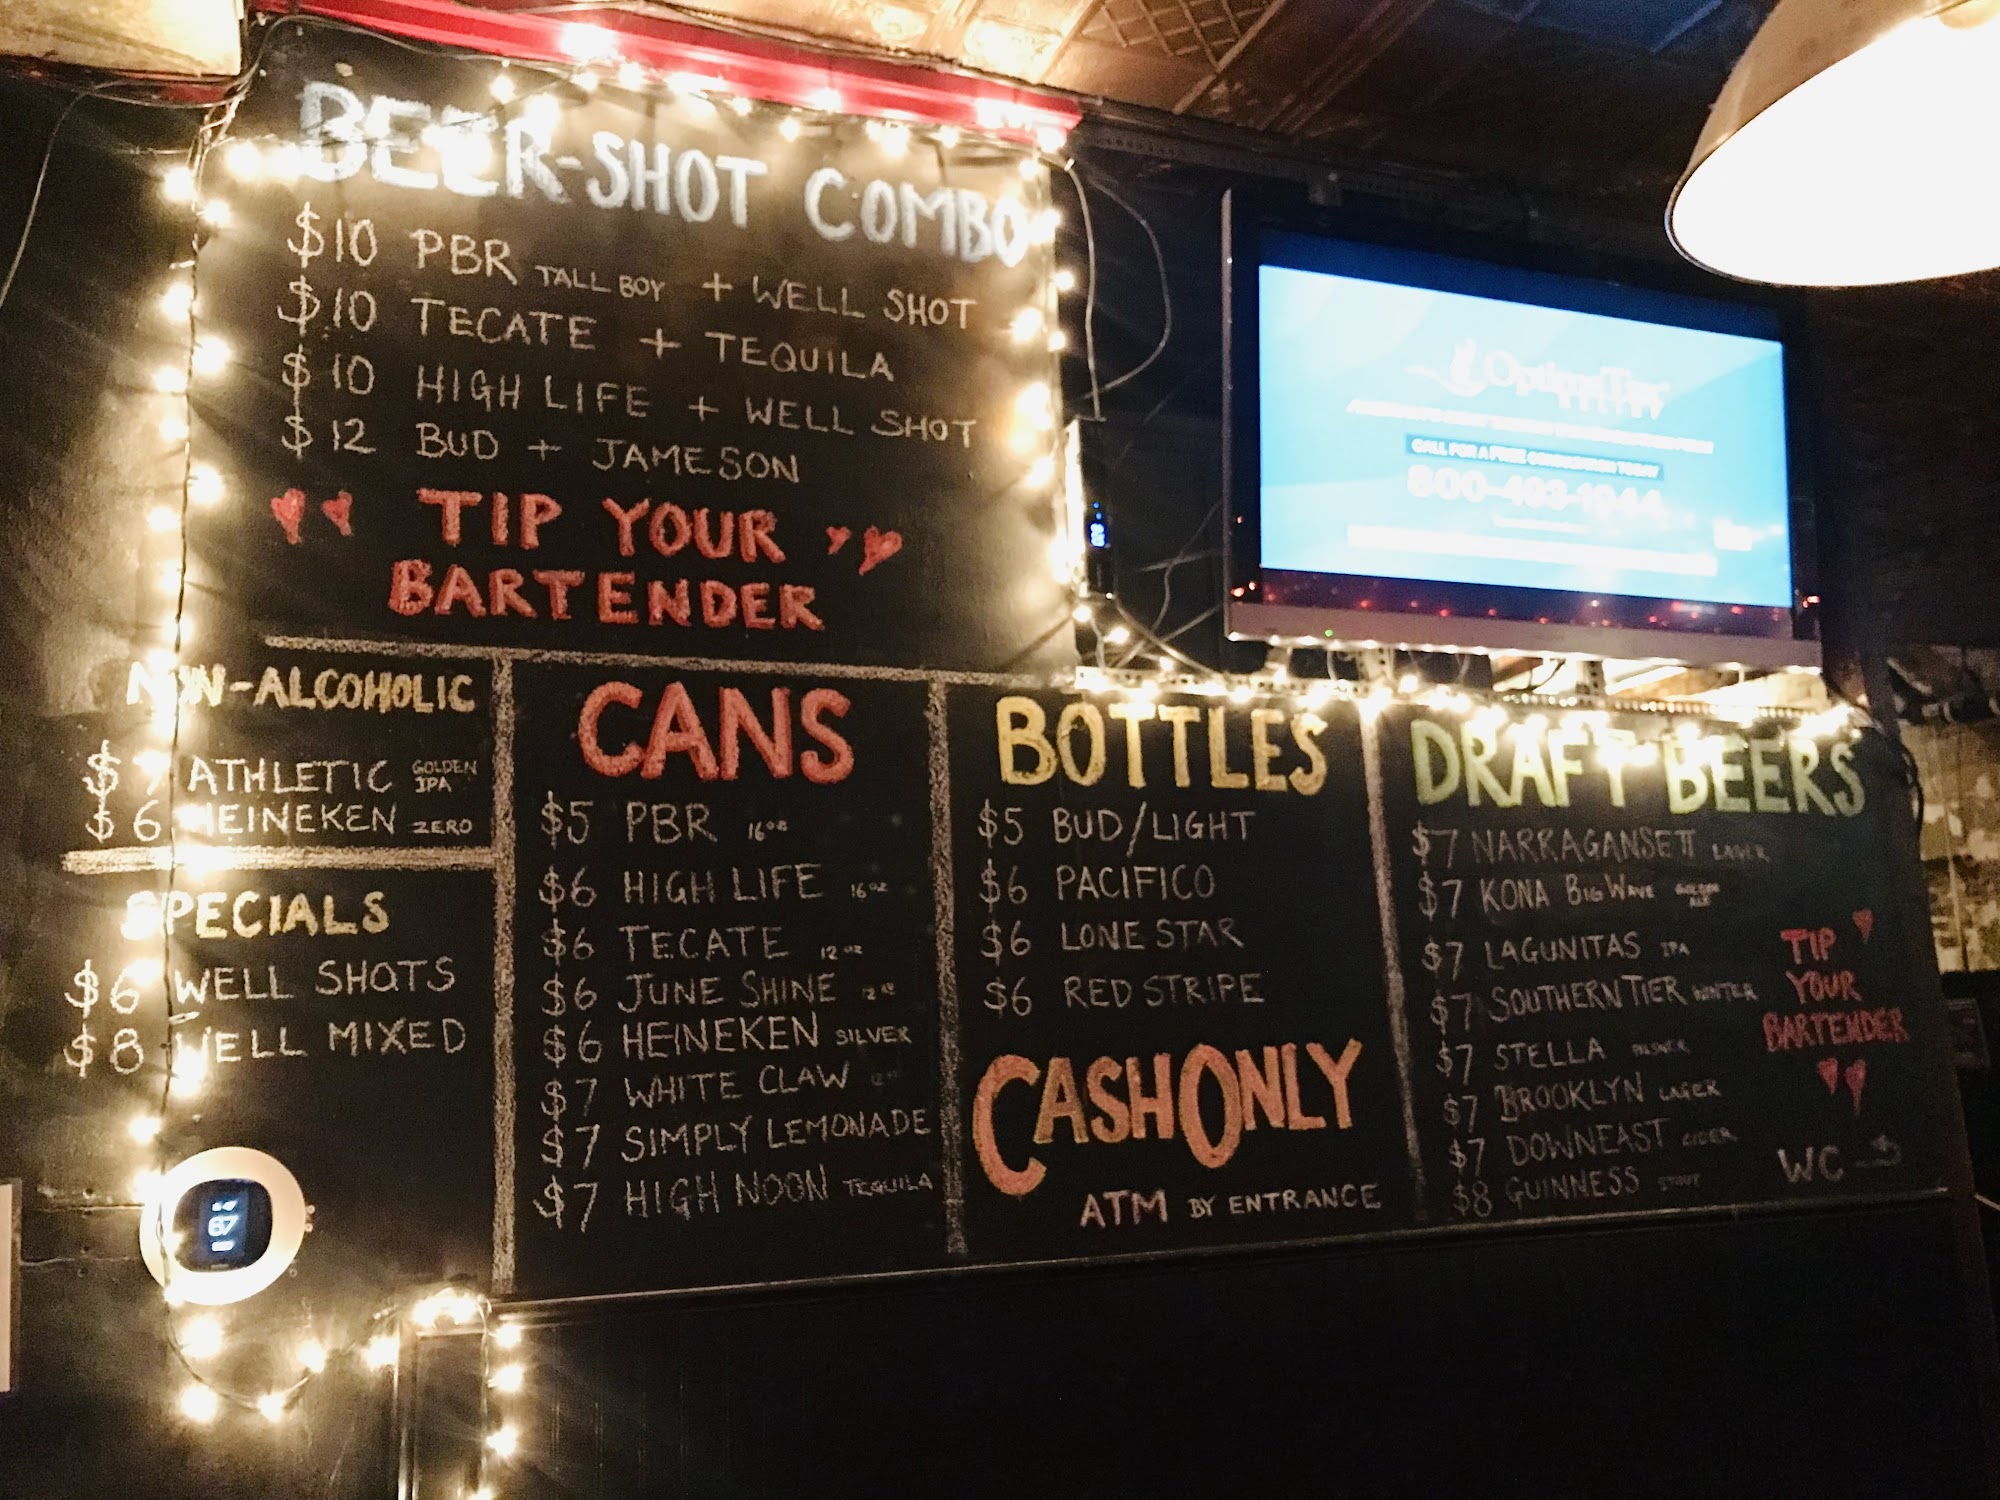 BEER-SHOT COMBO
$10 PBR TALL BOY + WELL SHOT
$10 TECATE + TEQUILA
$10 HIGH LIFE + WELL SHOT
$12 BUD + JAMESON
TIP YOUR
BARTENDER
NON-ALCOHOLIC
$7 ATHLETIC GOLDEN IPA
$6 HEINEKEN ZERO
SPECIALS
$6 WELL SHOTS
$8 WELL MIXED
67
CANS
$5 PBR 16oz
$6 HIGH LIFE 16oz
$6 TECATE 12oz
$6 JUNE SHINE 12oz
$6 HEINEKEN SILVER
$7 WHITE CLAW
$7 SIMPLY LEMONADE
$7 HIGH NOON TEQUILA
BOTTLES
$5 BUD/LIGHT
$6 PACIFICO
$6 LONE STAR
$6 RED STRIPE
CASH ONLY
ATM BY ENTRANCE
DRAFT BEERS
$7 NARRAGANSETT LAGER
$7 KONA BIG WAVE GOLDEN ALE
$7 LAGUNITAS IPA
$7 SOUTHERN TIER WINTER
$7 STELLA PILSNER
$7 BROOKLYN LAGER
$7 DOWNEAST CIDER
$8 GUINNESS STOUT
TIP
YOUR
BARTENDER
WC
CALL FOR A FREE CONSULTATION TODAY